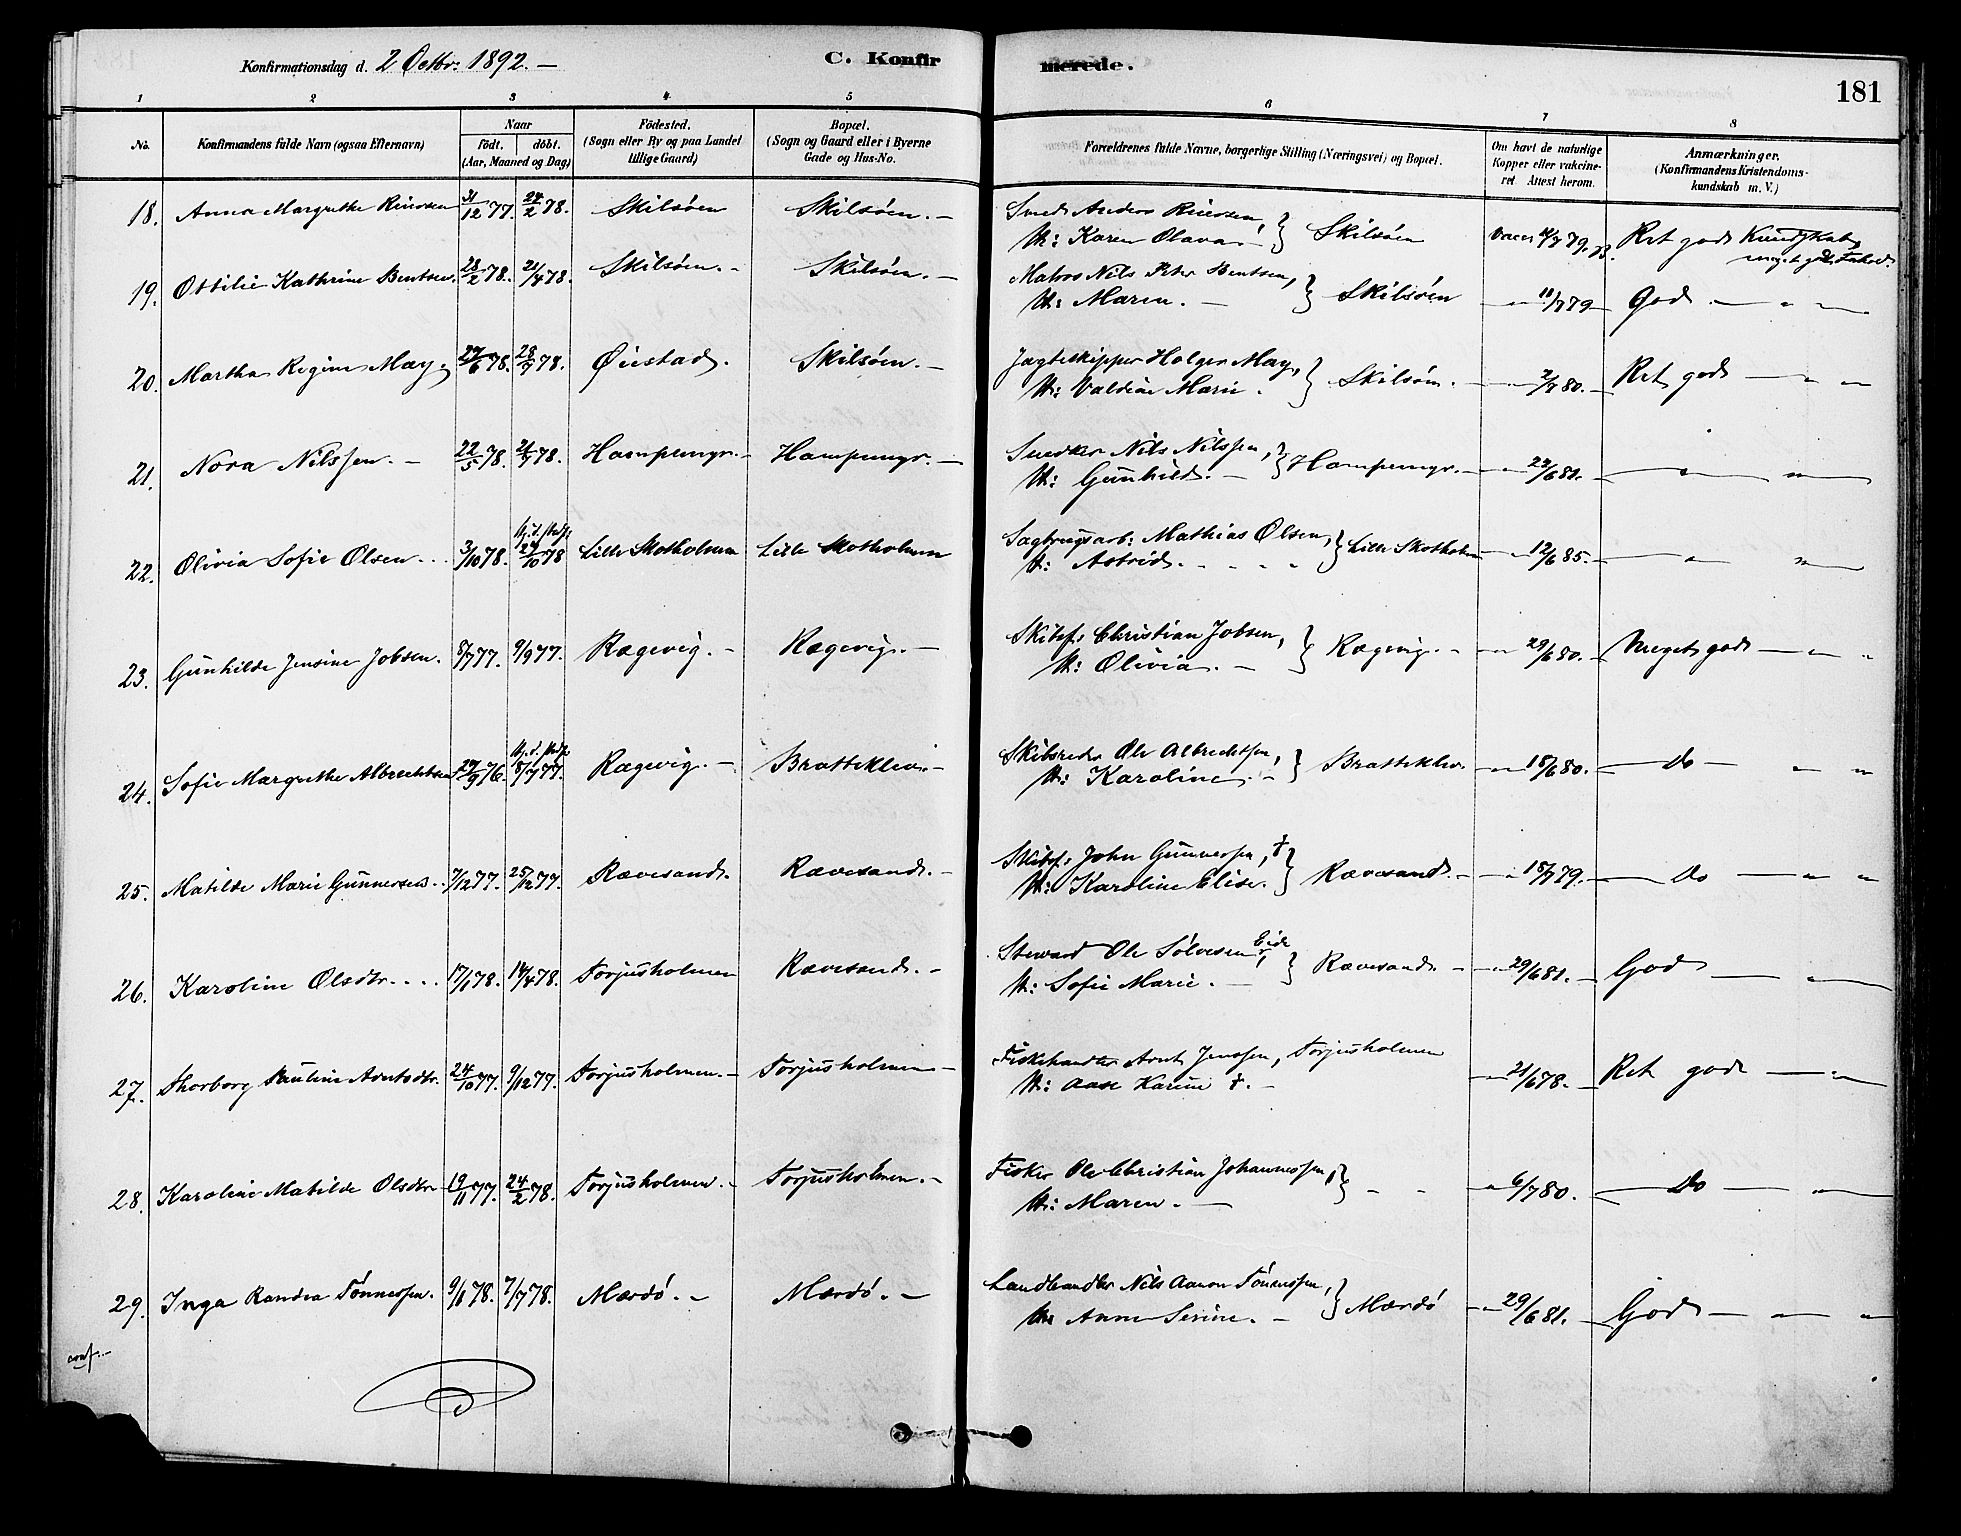 Konfirmationsdag d. 2 Octbr. 1892. —
C. Konfirmerede.
181
1 2 3 4 5 6 7 8
No.
Konfirmandens fulde Navn (ogsaa Efternavn)
Naar
födt. döbt.
(Aar, Maaned og Dag)
Födested.
(Sogn eller By og paa Landet
tillige Gaard)
Bopæl.
(Sogn og Gaard eller i Byerne
Gade og Hus-No.
Forældrenes fulde Navne, borgerlige Stilling (Næringsvei) og Bopæl.
Om havt de naturlige
Kopper eller vakcine-
ret Attest herom.
Anmærkninger.
(Konfirmandens Kristendoms-
kundskab m. V.)
18. Anna Margrethe 31/12 77. 24/2 78. Skilsöen Skilsöen. —
Smed Anders
M: Karen Olava — } Skilsöen 79. Ret god Kundskab
meget god Forhold.
19. Ottilie Kathrine Bentsen. 28/2 78. 21/4 78. Skilsöen. - Skilsöen. —
Matros Nils Peter Bentsen,
M: Maren. — } Skilsöen — " 11/7 79 — God — " "
20. Martha Regine May. 27/6 78. 28/7 78. Öiestad. Skilsöen. —
Jagteskipper Holger May,
M: Valdine Marie. } Skilsöen. — " 2/7 80. — Ret god — " "
21. Nora Nilssen. — 22/5 78. 21/7 78. Hampungr. - Hampungr. —
Snedker Nils Nilssen,
M: Gunhild. — } Hampungr. — " 29/6 81. — " "
22. Olivia Sofie Olsen. 3/10 78. 27/10 78 Lille Skotholmen Lille Skotholmen
Sagbrugsarb: Mathias Olsen,
M: Astrid. } Lille Skotholm — " 12/6 85. — " "
23. Gunhilde Jensine Jobsen. 8/7 77. 9/9 77. Rægevig. — Rægevig. —
Skibsf: Christian Jobsen,
M: Olivia. — } Rægevig. — " 29/6 80. — Meget god — " "
24. Sofie Margrethe Albrechtsen 29/9 76. 8/7 77. Rægevig. — Bratteklev. —
Skibsreder Ole Albrechtsen,
M: Karoline. — } Bratteklev. — " 18/6 80. — Do — " "
25. Matilde Marie Gunnersen. 7/12 77. 25/12 77. Rævesand. Rævesand. —
Skibsf: John Gunnersen, †
M: Karoline Elise. } Rævesand. — " 18/7 79. — Do — " "
26. Karoline Olsdtr. 17/1 78. 14/4 78. Torjusholmen Rævesand. —
Steward Ole Sölvesen Eide,
M: Sofie Marie. — } Rævesand. — " 29/6 81. — God — "
27. Thorborg Pauline Arntsdtr. 24/10 77. 9/12 77. Torjusholmen. — Torjusholmen —
Fiskehandler Arnt Jenssen, Torjusholmen
M: Aase Karine †. — — " 21/6 78. — Ret god — "
28. Karoline Matilde Olsdtr 19/11 77. 24/2 78. Torjusholmen. - Torjusholmen. —
Fisker Ole Christian Johannessen,
M: Maren. — } — " 6/7 80. — Do — "
29. Inga Randea Tönnessen. 9/1 78. 7/7 78. Mærdö. - Mærdö. —
Landhandler Nils Aanon Tönnessen,
M: Anne Serine. — } Mærdö — " 29/6 81. — God — " "
conf.